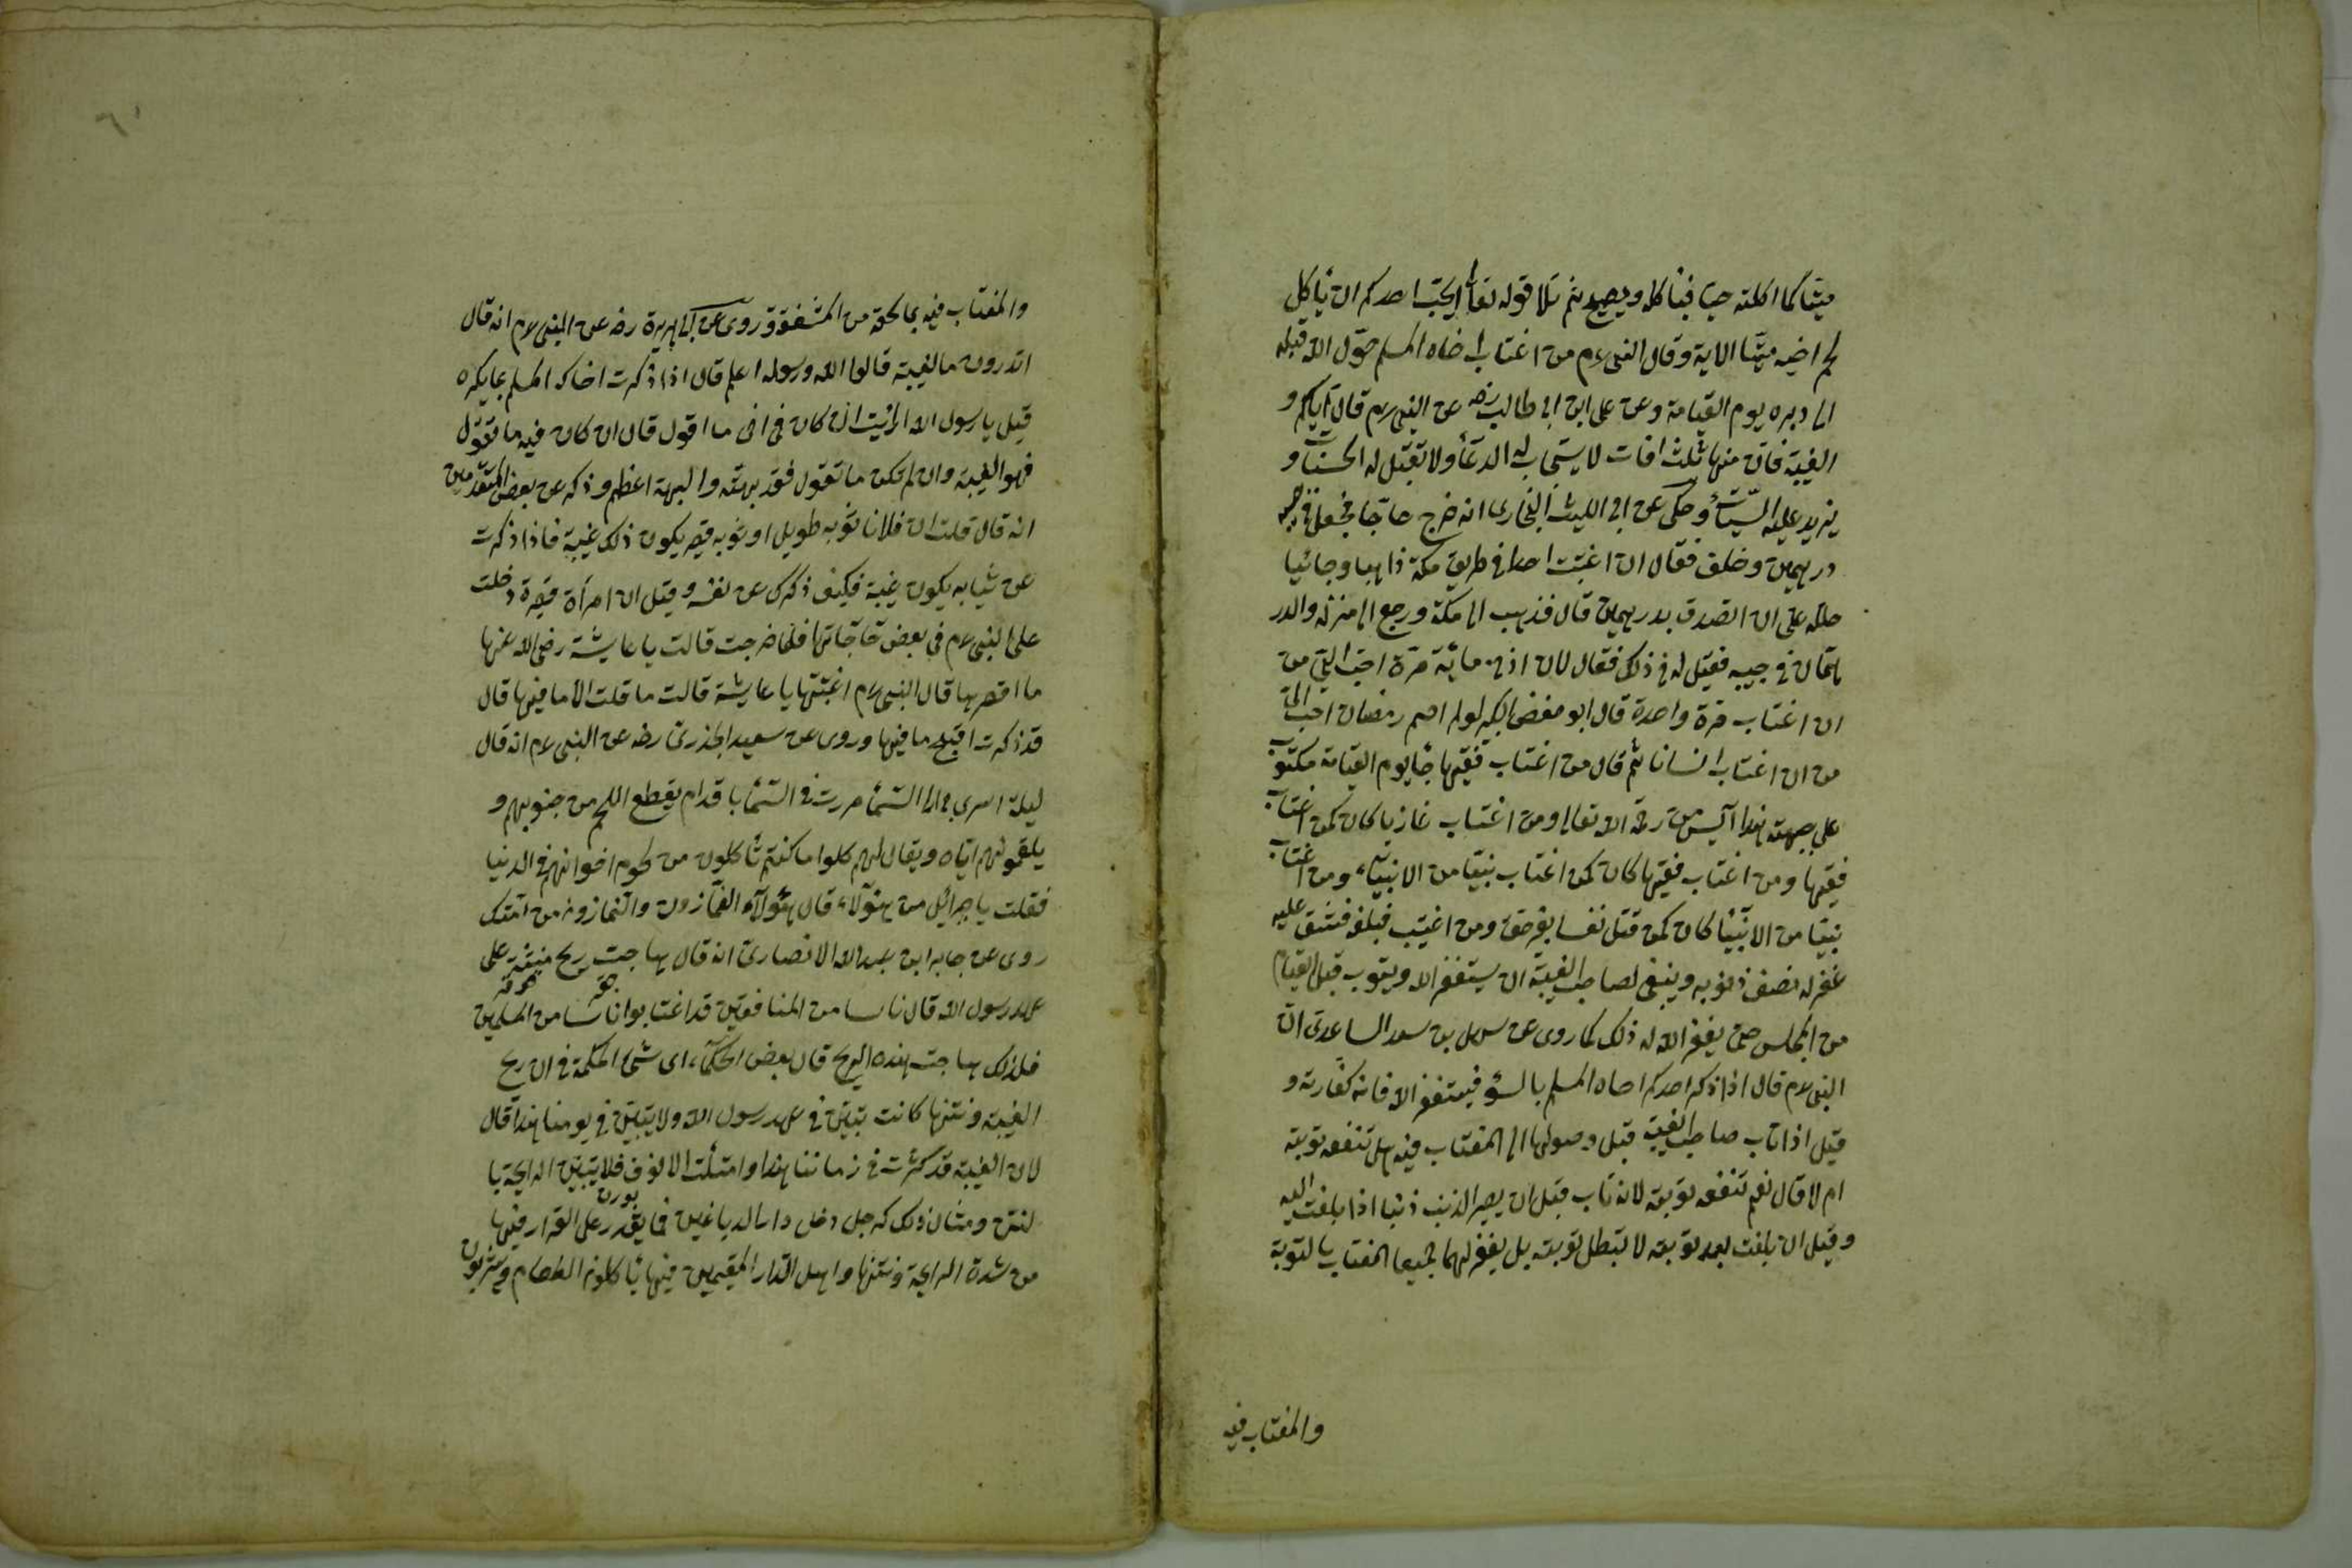 ميتا كما اكلته حيا فيأكله ويصيح ثم تلا قوله تعالى ايحب احدكم ان يأكل
لحم اخيه ميتا الاية وقال النبى عم من اغتاب اخاه المسلم حول الله قبله
الى دبره يوم القيامة وعن على ابن ابى طالب رضه عن النبى عم قال اياكم و
الغيبة فان منها ثلث افات لا يستجاب له الدعأ ولا تقبل له الحسنات و
يزيد عليه السيئات وحكى عن ابى الليث البخارى انه خرج حاجا فجعل فى جيبه
درهمين وخلف فقال ان اغبت احدا فى طريق مكة ذاهبا وجائيا
حالله على ان اتصدق بدرهمين قال فذهب الى مكة ورجع الى منزله والدر
همان فى جيبه فقيل له فى ذلك فقال لان اذنى مائة مرة احب الى من
ان اغتاب مرة واحدة قال ابو حفص الكبير لو لم اصم رمضان احب الى
من ان اغتاب انسانا ثم قال من اغتاب فقيها جأ يوم القيامة مكتوب
على جبهته هذا آيس من رحمة الله تعالى ومن اغتاب غازيا كان كمن اغتاب
فقيها ومن اغتاب فقيها كان كمن اغتاب نبيا من الانبياء ومن اغتاب
نبيا من الانبيأ كان كمن قتل نفسا بغير حق ومن اغتيب فبلغه فشق عليه
غفر له نصف ذنوبه وينبغى لصاحب الغيبة ان يستغفر الله ويتوب قبل القيام
من المجلس حتى يغفر الله له ذلك كما روى عن سهل بن سعد الساعدى ان
النبى عم قال اذا ذكر احدكم اخاه المسلم بالسؤ فيستغفر الله فانه كفارته و
قيل اذا تاب صاحب الغيبة قبل وصولها الى المغتاب فيه هل تنفعه توبته
ام لا قال نعم تنفعه توبته لانه تاب قبل ان يصير الذنب ذنبا اذا بلغت اليه
وقيل ان بلغت بعد توبته لا تبطل توبته بل يغفر لهما جميعا المغتاب بالتوبة
والمغتاب فيه
٦١
والمغتاب فيه بما لحقه من المشقة وروى عن ابى هريرة رضه عن النبى عم انه قال
اتدرون ما الغيبة قالوا الله ورسوله اعلم قال اذا ذكرت اخاك المسلم بما يكره
قيل يا رسول الله ارأيت ان كان فى اخى ما اقول قال ان كان فيه ما تقول
فهو الغيبة وان لم تكن ما تقول فقد بهته والبهتة اعظم وذكر عن بعض المتقدمين
انه قال قلت ان فلانا ثوبه طويل او ثوبه قصير يكون ذلك غيبة فاذا ذكرت
عن ثيابه يكون غيبة فكيف ذكرك عن نفسه وقيل ان امرأة قصيرة دخلت
على النبى عم فى بعض حاجاتها فلما خرجت قالت يا عايشة رضى الله عنها
ما اقصرها قال النبى عم اغبتها يا عايشة قالت ما قلت الا ما فيها قال
قد ذكرت اقبح ما فيها وروى عن سعيد الخذرى رضه عن النبى عم انه قال
ليلة اسرى بى الى السمأ مررت فى السمأ باقدام يقطع اللحم من جنوبهم و
يلقمونهم اياه ويقال لهم كلوا ما كنتم تأكلون من لحوم اخوانهم فى الدنيا
فقلت يا جبرائيل من هؤلاء قال هؤلآء الغمازون والنمازون من امتك
روى عن جابر ابن عبد الله الانصارى انه قال هاجت ريح منتنة على
عهد رسول الله قال ناسا من المنافقين قد اغتابوا ناسا من المسلمين
فلذلك هاجت هذه الريح قال بعض الحكمآء اى شئ الحكمة فى ان ريح
الغيبة ونتنها كانت تبين فى عهد رسول الله ولا يتبين فى يومنا هذا قال
لان الغيبة قد كثرت فى زماننا هذا وامتلت الانوف فلا يتبين الرايحة با
لنتن ومثال ذلك كرجل دخل دار الدباغين فما يقدر على القرار فيها
من شدة الرايحة ونتنها واهل الدار المقيمين فيها يأكلون الطعام ويشربون